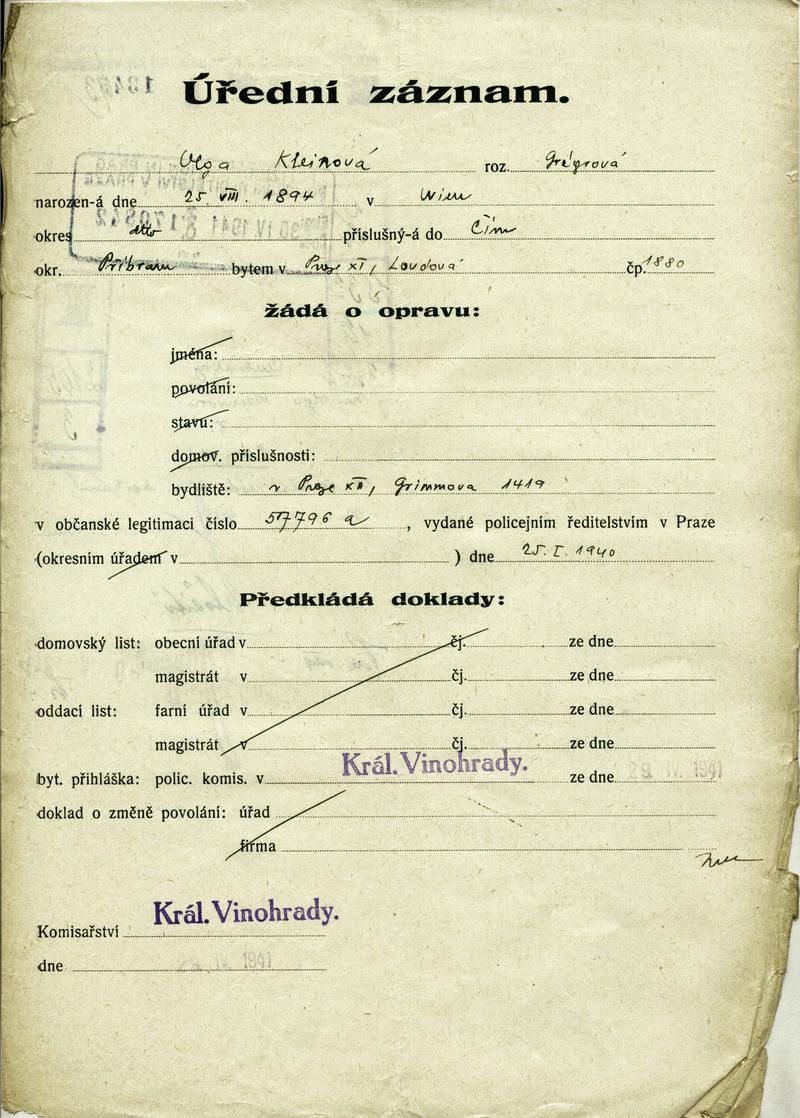 Úřední záznam.
Olga Kleinová roz. Grégrová
narozen-á dne 25 VIII. 1894 v Wien
okres dtto příslušný-á do Čím
okr. Příbram bytem v Praze XI, Loudová čp. 1880
žádá o opravu:
jména:
povolání:
stavu:
domov. příslušnosti:
bydliště: v Praze XII, Grimmova 1419
v občanské legitimaci číslo 57796 a, vydané policejním ředitelstvím v Praze
(okresním úřadem v ) dne 25. I. 1940
Předkládá doklady:
domovský list: obecní úřad v čj. ze dne
magistrát v čj. ze dne
oddací list: farní úřad v čj. ze dne
magistrát v čj. ze dne
byt. přihláška: polic. komis. v Král. Vinohrady. ze dne 29. IV. 1941
doklad o změně povolání: úřad
firma
Komisařství Král. Vinohrady.
dne 29. IV. 1941